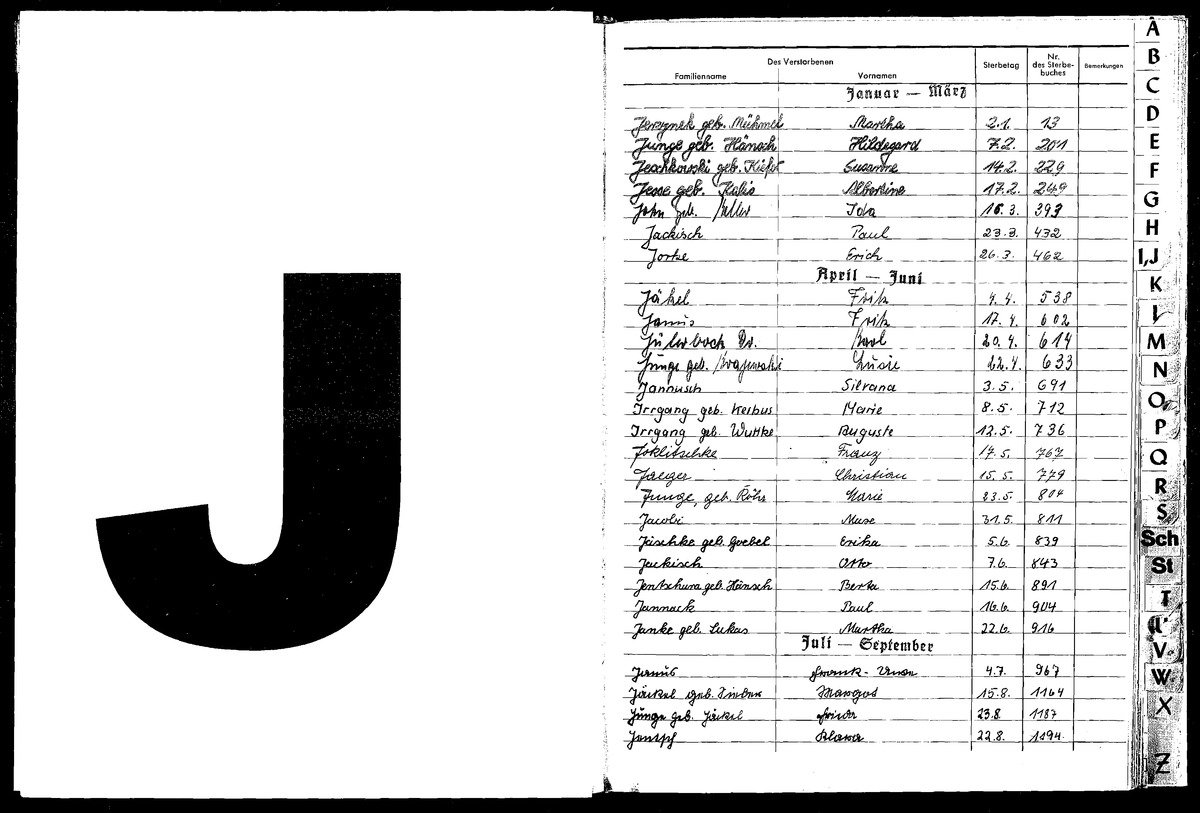 J
Des Verstorbenen
Familienname Vornamen Sterbetag Nr. des Sterbe-buches Bemerkungen
Januar — März
Jerzynek geb. Mühmel Martha 2.1. 13
Junge geb. Hänsch Hildegard 7.2. 201
Jeschkowski geb. Kiefer Susanne 14.2. 229
Jesse geb. Kalis Albertine 17.2. 249
John geb. Keller Ida 16.3. 393
Jackisch Paul 23.3. 432
Jortke Erich 26.3. 462
April — Juni
Jäkel Fritz 4.4. 538
Janus Fritz 17.4. 602
Jüterbock Dr. Karl 20.4. 614
Junge geb. Krajewski Lucie 22.4. 633
Jannusch Silvana 3.5. 691
Irrgang geb. Kerbus Marie 8.5. 712
Irrgang geb. Wuttke Auguste 12.5. 736
Joklitschke Franz 17.5. 767
Jaeger Christian 15.5. 779
Junge, geb. Röhr Marie 23.5. 804
Jacobi 31.5. 811
Jäschke geb. Goebel Erika 5.6. 839
Jackisch Otto 7.6. 843
Jentschura geb. Hänsch Berta 15.6. 891
Jannack Paul 16.6. 904
Janke geb. Lukas Martha 22.6. 916
Juli — September
Janus Frank- Uwe 4.7. 967
Jäckel geb. Margot 15.8. 1164
Junge geb. Jäckel Frieda 23.8. 1187
Jentsch Klara 22.8. 1194
A
B
C
D
E
F
G
H
I,J
K
L
M
N
O
P
Q
R
S
Sch
St
T
U
V
W
X
Z